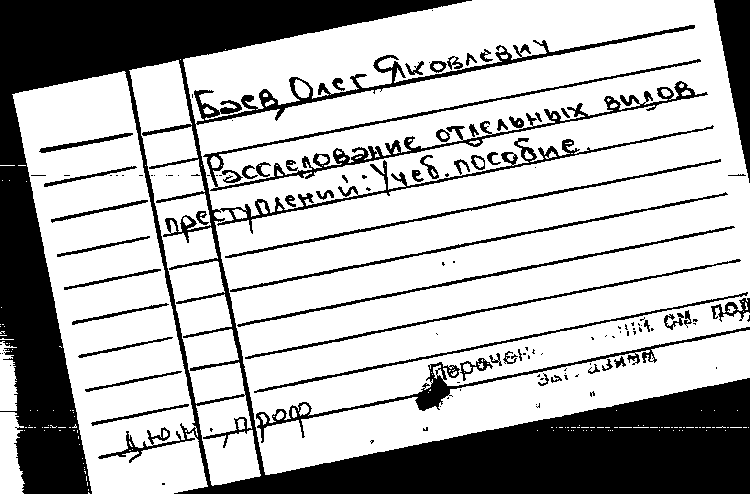 Баев, Олег Яковлевич
Расследование отдельных видов
преступлений: Учеб. пособие.
см. под
д.ю.н., проф